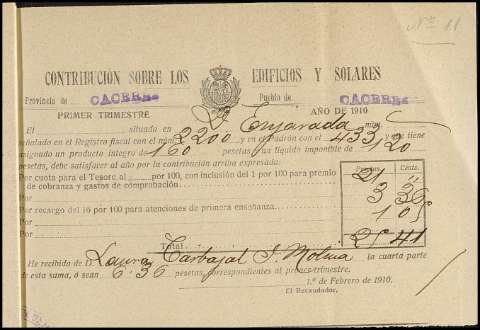 Nº 11
CONTRIBUCIÓN SOBRE LOS EDIFICIOS Y SOLARES
Provincia de CACERES Pueblo de CACERES
PRIMER TRIMESTRE AÑO DE 1910
El situada en Enjarada núm.
señalado en el Registro fiscal con el núm. 2200 y en el padrón con el 433 y que tiene
asignado un producto íntegro de 160 pesetas, y líquido imponible de 120
pesetas, debe satisfacer al año por la contribución arriba expresada:
Pesetas Cénts.
Por cuota para el Tesoro al por 100, con inclusión del 1 por 100 para premio
de cobranza y gastos de comprobación 21
Por 3 36
Por recargo del 16 por 100 para atenciones de primera enseñanza.
Por 1 05
Por
Total 25 41
He recibido de D. Laura Carbajal J. Molina la cuarta parte
de esta suma, ó sean 6'36 pesetas, correspondientes al primer trimestre.
1.º de Febrero de 1910.
El Recaudador,